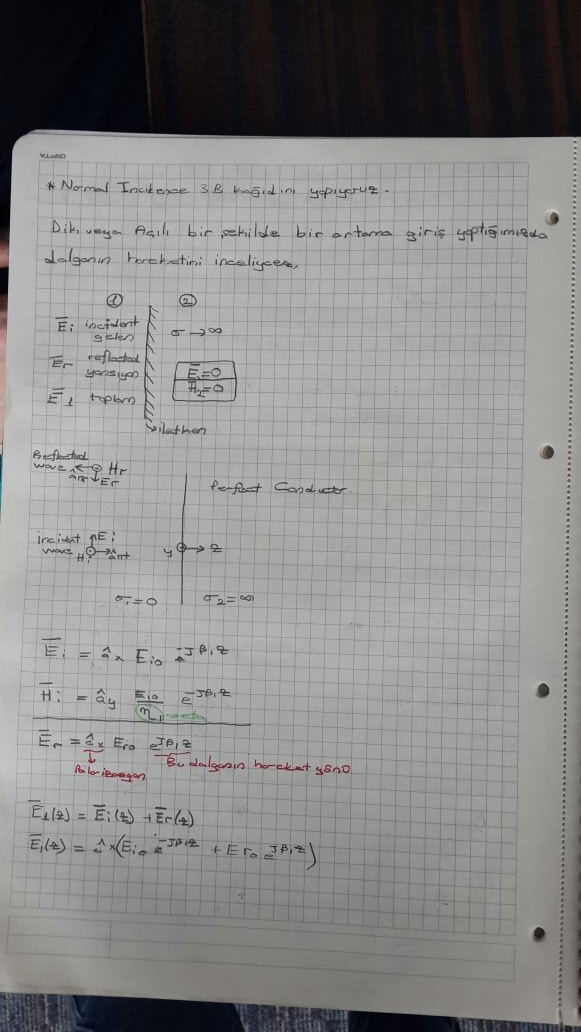 * Normal Incidence 3B kağıdını yapıyoruz.
Dik veya Açılı bir şekilde bir ortama giriş yaptığımızda
dalganın hareketini inceliycez,
① ②
E̅i incident gelen σ → ∞
E̅r reflected yansıyan E̅2=0
E̅1 toplam H̅2=0
iletken
Reflected
wave Hr
Er
Perfect Conductor
incident Ei
wave Hi
y z
σ1=0 σ2=∞
E̅i = âx Eio e^-Jβ1z
H̅i = ây Eio/η1 e^-Jβ1z eta
E̅r = âx Ero e^Jβ1z
Polarizasyon Bu dalganın hareket yönü
E̅1(z) = E̅i(z) + E̅r(z)
E̅1(z) = âx(Eio e^-Jβ1z + Ero e^Jβ1z)